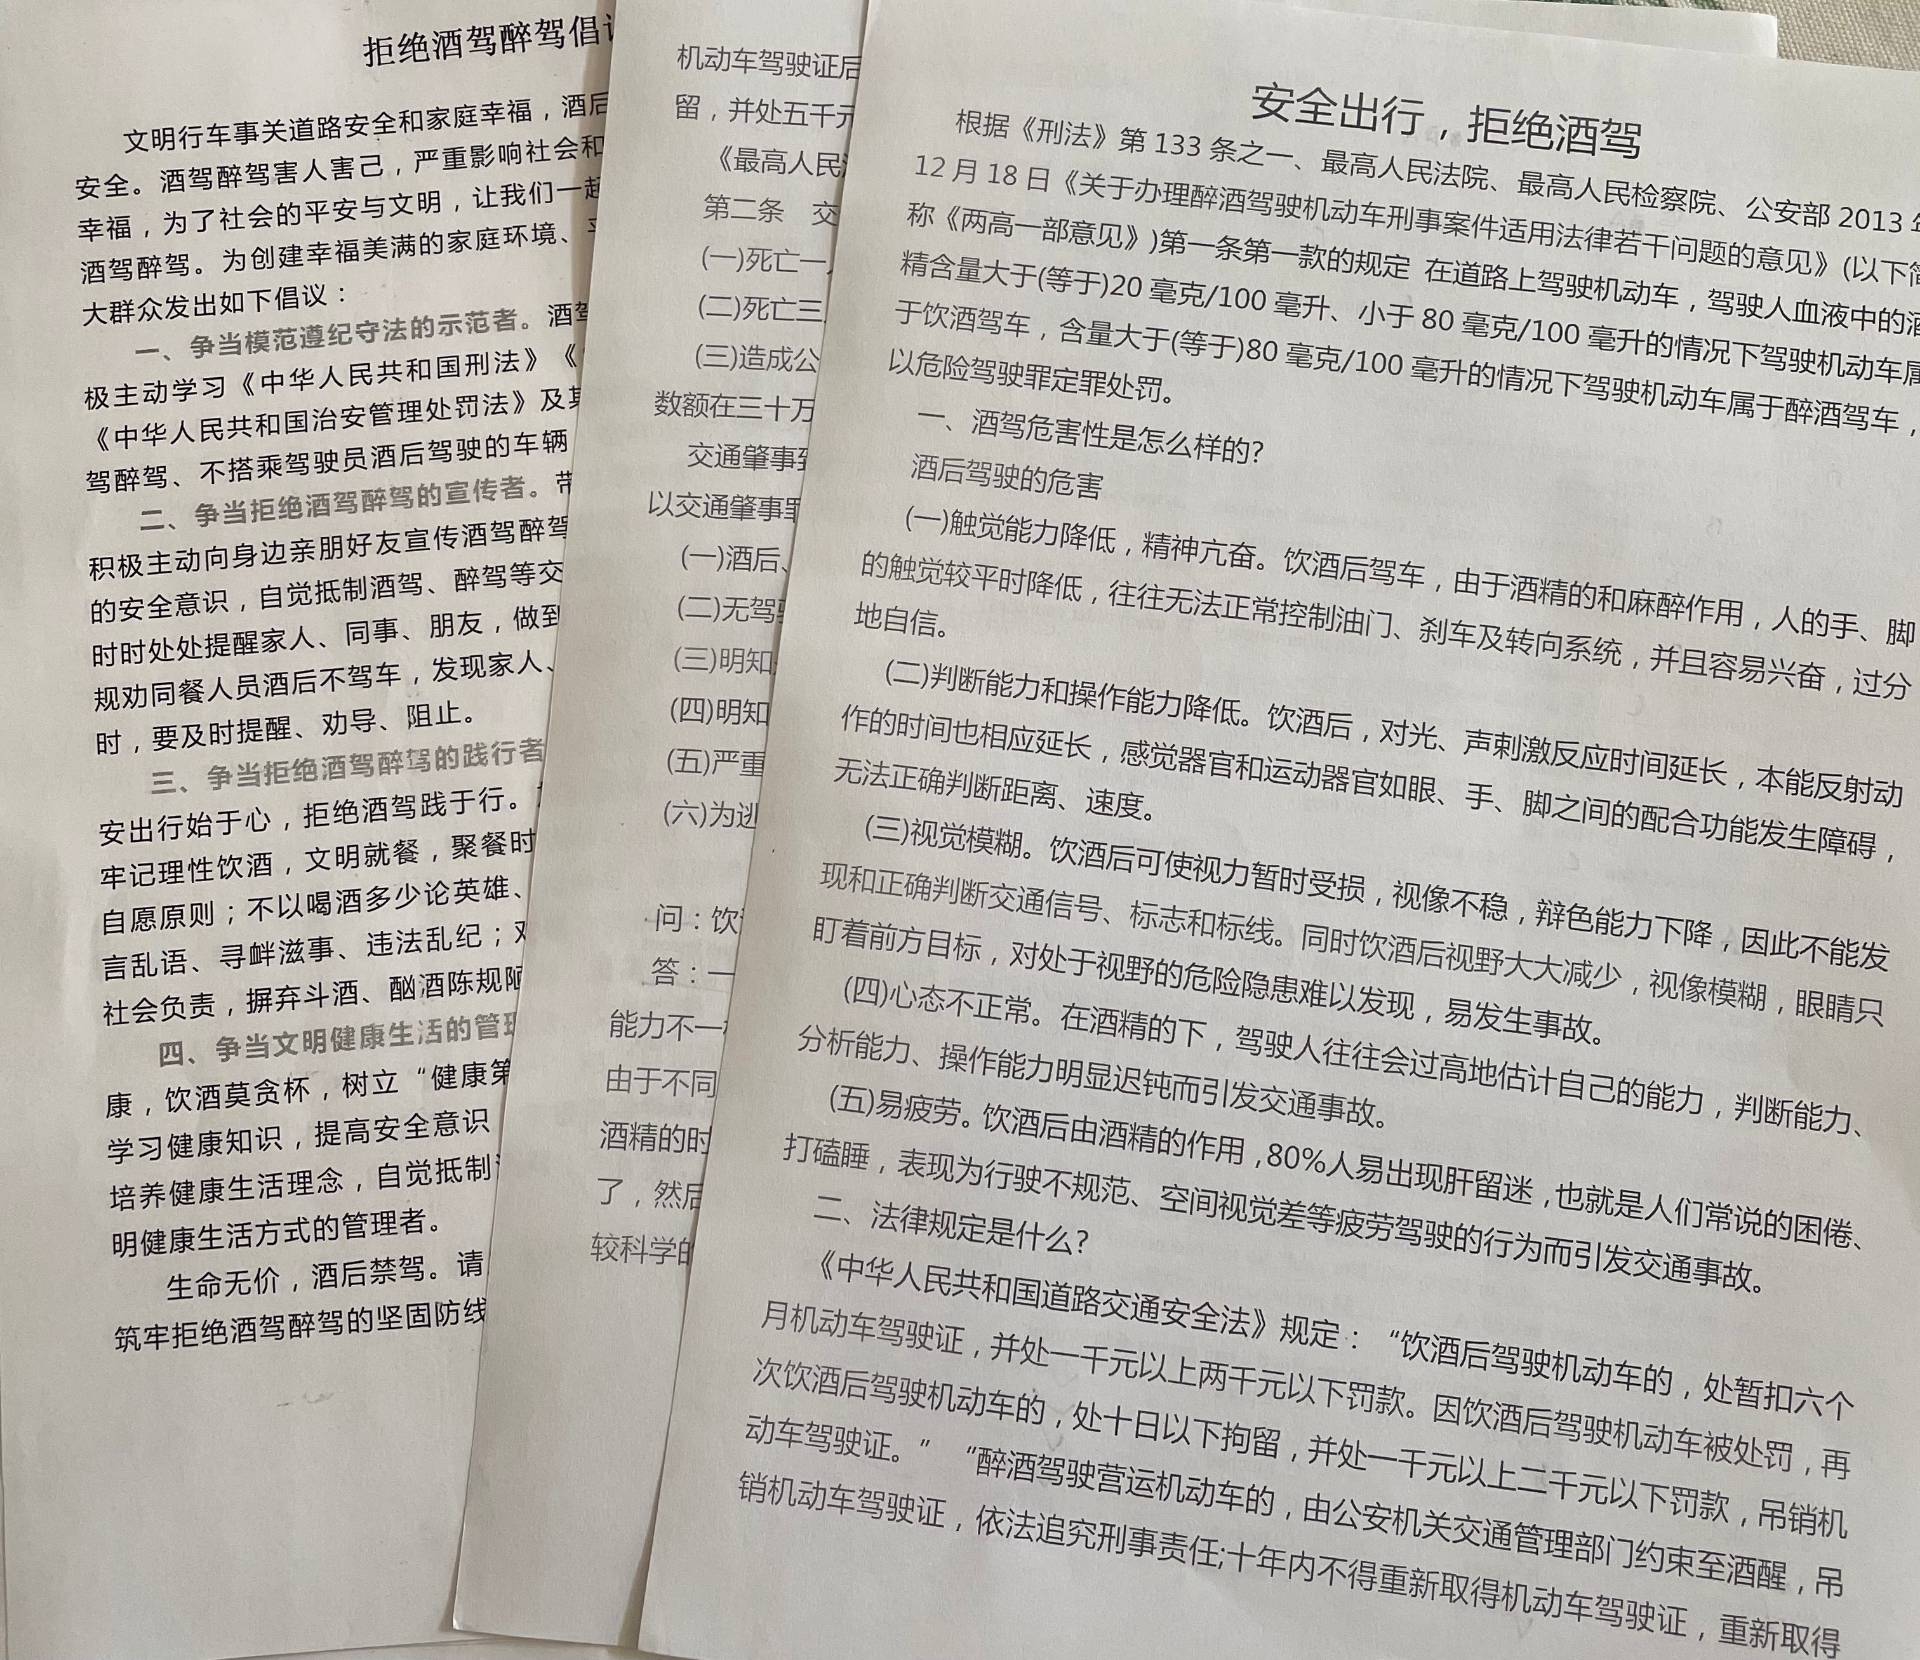 拒绝酒驾醉驾倡
文明行车事关道路安全和家庭幸福，酒后
安全。酒驾醉驾害人害己，严重影响社会和
幸福，为了社会的平安与文明，让我们一起
酒驾醉驾。为创建幸福美满的家庭环境、
大群众发出如下倡议：
一、争当模范遵纪守法的示范者。酒驾
极主动学习《中华人民共和国刑法》《
《中华人民共和国治安管理处罚法》及其
驾醉驾、不搭乘驾驶员酒后驾驶的车辆
二、争当拒绝酒驾醉驾的宣传者。带
积极主动向身边亲朋好友宣传酒驾醉驾
的安全意识，自觉抵制酒驾、醉驾等交
时时处处提醒家人、同事、朋友，做到
规劝同餐人员酒后不驾车，发现家人、
时，要及时提醒、劝导、阻止。
三、争当拒绝酒驾醉驾的践行者
安出行始于心，拒绝酒驾践于行。
牢记理性饮酒，文明就餐，聚餐时
自愿原则；不以喝酒多少论英雄、
言乱语、寻衅滋事、违法乱纪；对
社会负责，摒弃斗酒、酗酒陈规陋
四、争当文明健康生活的管理
康，饮酒莫贪杯，树立“健康第
学习健康知识，提高安全意识
培养健康生活理念，自觉抵制
明健康生活方式的管理者。
生命无价，酒后禁驾。请
筑牢拒绝酒驾醉驾的坚固防线
机动车驾驶证后
留，并处五千元
《最高人民法
第二条 交
(一)死亡一人
(二)死亡三
(三)造成公
数额在三十万
交通肇事致
以交通肇事罪
(一)酒后、
(二)无驾驶
(三)明知
(四)明知
(五)严重
(六)为逃
问：饮酒
答：一
能力不一样
由于不同
酒精的时
了，然后
较科学的
安全出行，拒绝酒驾
根据《刑法》第 133 条之一、最高人民法院、最高人民检察院、公安部 2013 年
12 月 18 日《关于办理醉酒驾驶机动车刑事案件适用法律若干问题的意见》(以下简
称《两高一部意见》)第一条第一款的规定 在道路上驾驶机动车，驾驶人血液中的酒
精含量大于(等于)20 毫克/100 毫升、小于 80 毫克/100 毫升的情况下驾驶机动车属
于饮酒驾车，含量大于(等于)80 毫克/100 毫升的情况下驾驶机动车属于醉酒驾车，
以危险驾驶罪定罪处罚。
一、酒驾危害性是怎么样的?
酒后驾驶的危害
(一)触觉能力降低，精神亢奋。饮酒后驾车，由于酒精的和麻醉作用，人的手、脚
的触觉较平时降低，往往无法正常控制油门、刹车及转向系统，并且容易兴奋，过分
地自信。
(二)判断能力和操作能力降低。饮酒后，对光、声刺激反应时间延长，本能反射动
作的时间也相应延长，感觉器官和运动器官如眼、手、脚之间的配合功能发生障碍，
无法正确判断距离、速度。
(三)视觉模糊。饮酒后可使视力暂时受损，视像不稳，辩色能力下降，因此不能发
现和正确判断交通信号、标志和标线。同时饮酒后视野大大减少，视像模糊，眼睛只
盯着前方目标，对处于视野的危险隐患难以发现，易发生事故。
(四)心态不正常。在酒精的下，驾驶人往往会过高地估计自己的能力，判断能力、
分析能力、操作能力明显迟钝而引发交通事故。
(五)易疲劳。饮酒后由酒精的作用，80%人易出现肝留迷，也就是人们常说的困倦、
打磕睡，表现为行驶不规范、空间视觉差等疲劳驾驶的行为而引发交通事故。
二、法律规定是什么?
《中华人民共和国道路交通安全法》规定：“饮酒后驾驶机动车的，处暂扣六个
月机动车驾驶证，并处一千元以上两千元以下罚款。因饮酒后驾驶机动车被处罚，再
次饮酒后驾驶机动车的，处十日以下拘留，并处一千元以上二千元以下罚款，吊销机
动车驾驶证。”“醉酒驾驶营运机动车的，由公安机关交通管理部门约束至酒醒，吊
销机动车驾驶证，依法追究刑事责任;十年内不得重新取得机动车驾驶证，重新取得